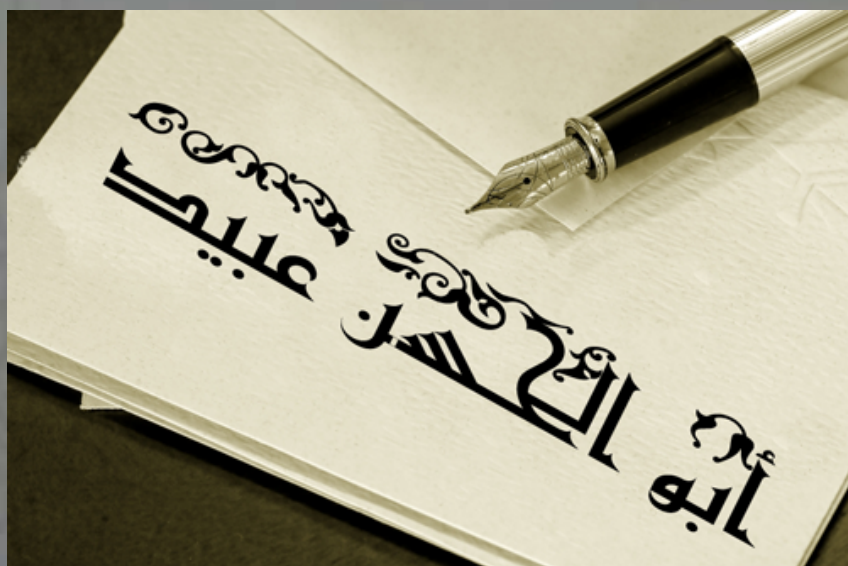 أبو الحسن عبيد